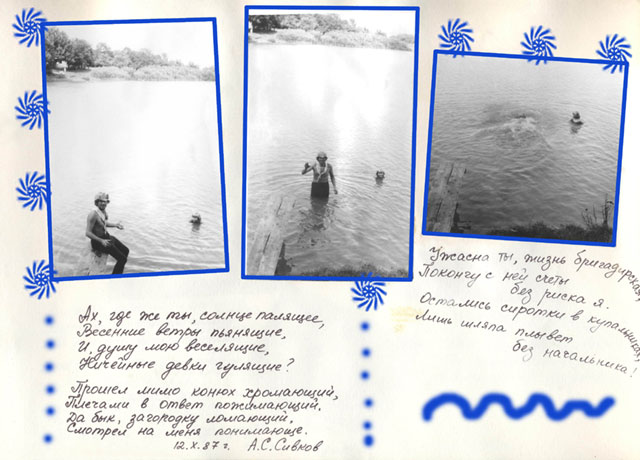 Ах, где же ты, солнце палящее,
Весенние ветры пьянящие,
И, душу мою веселящие,
Ничейные девки гулящие?
Прошел мимо конюх хромающий,
Плечами в ответ пожимающий.
Да бык, загородку ломающий,
Смотрел на меня понимающе.
12.X.87г. А.С.Сивков
Ужасна ты, жизнь бригадирская,
Покончу с ней счеты
без риска я.
Остались сиротки в купальниках,
Лишь шляпа плывет
без начальника!